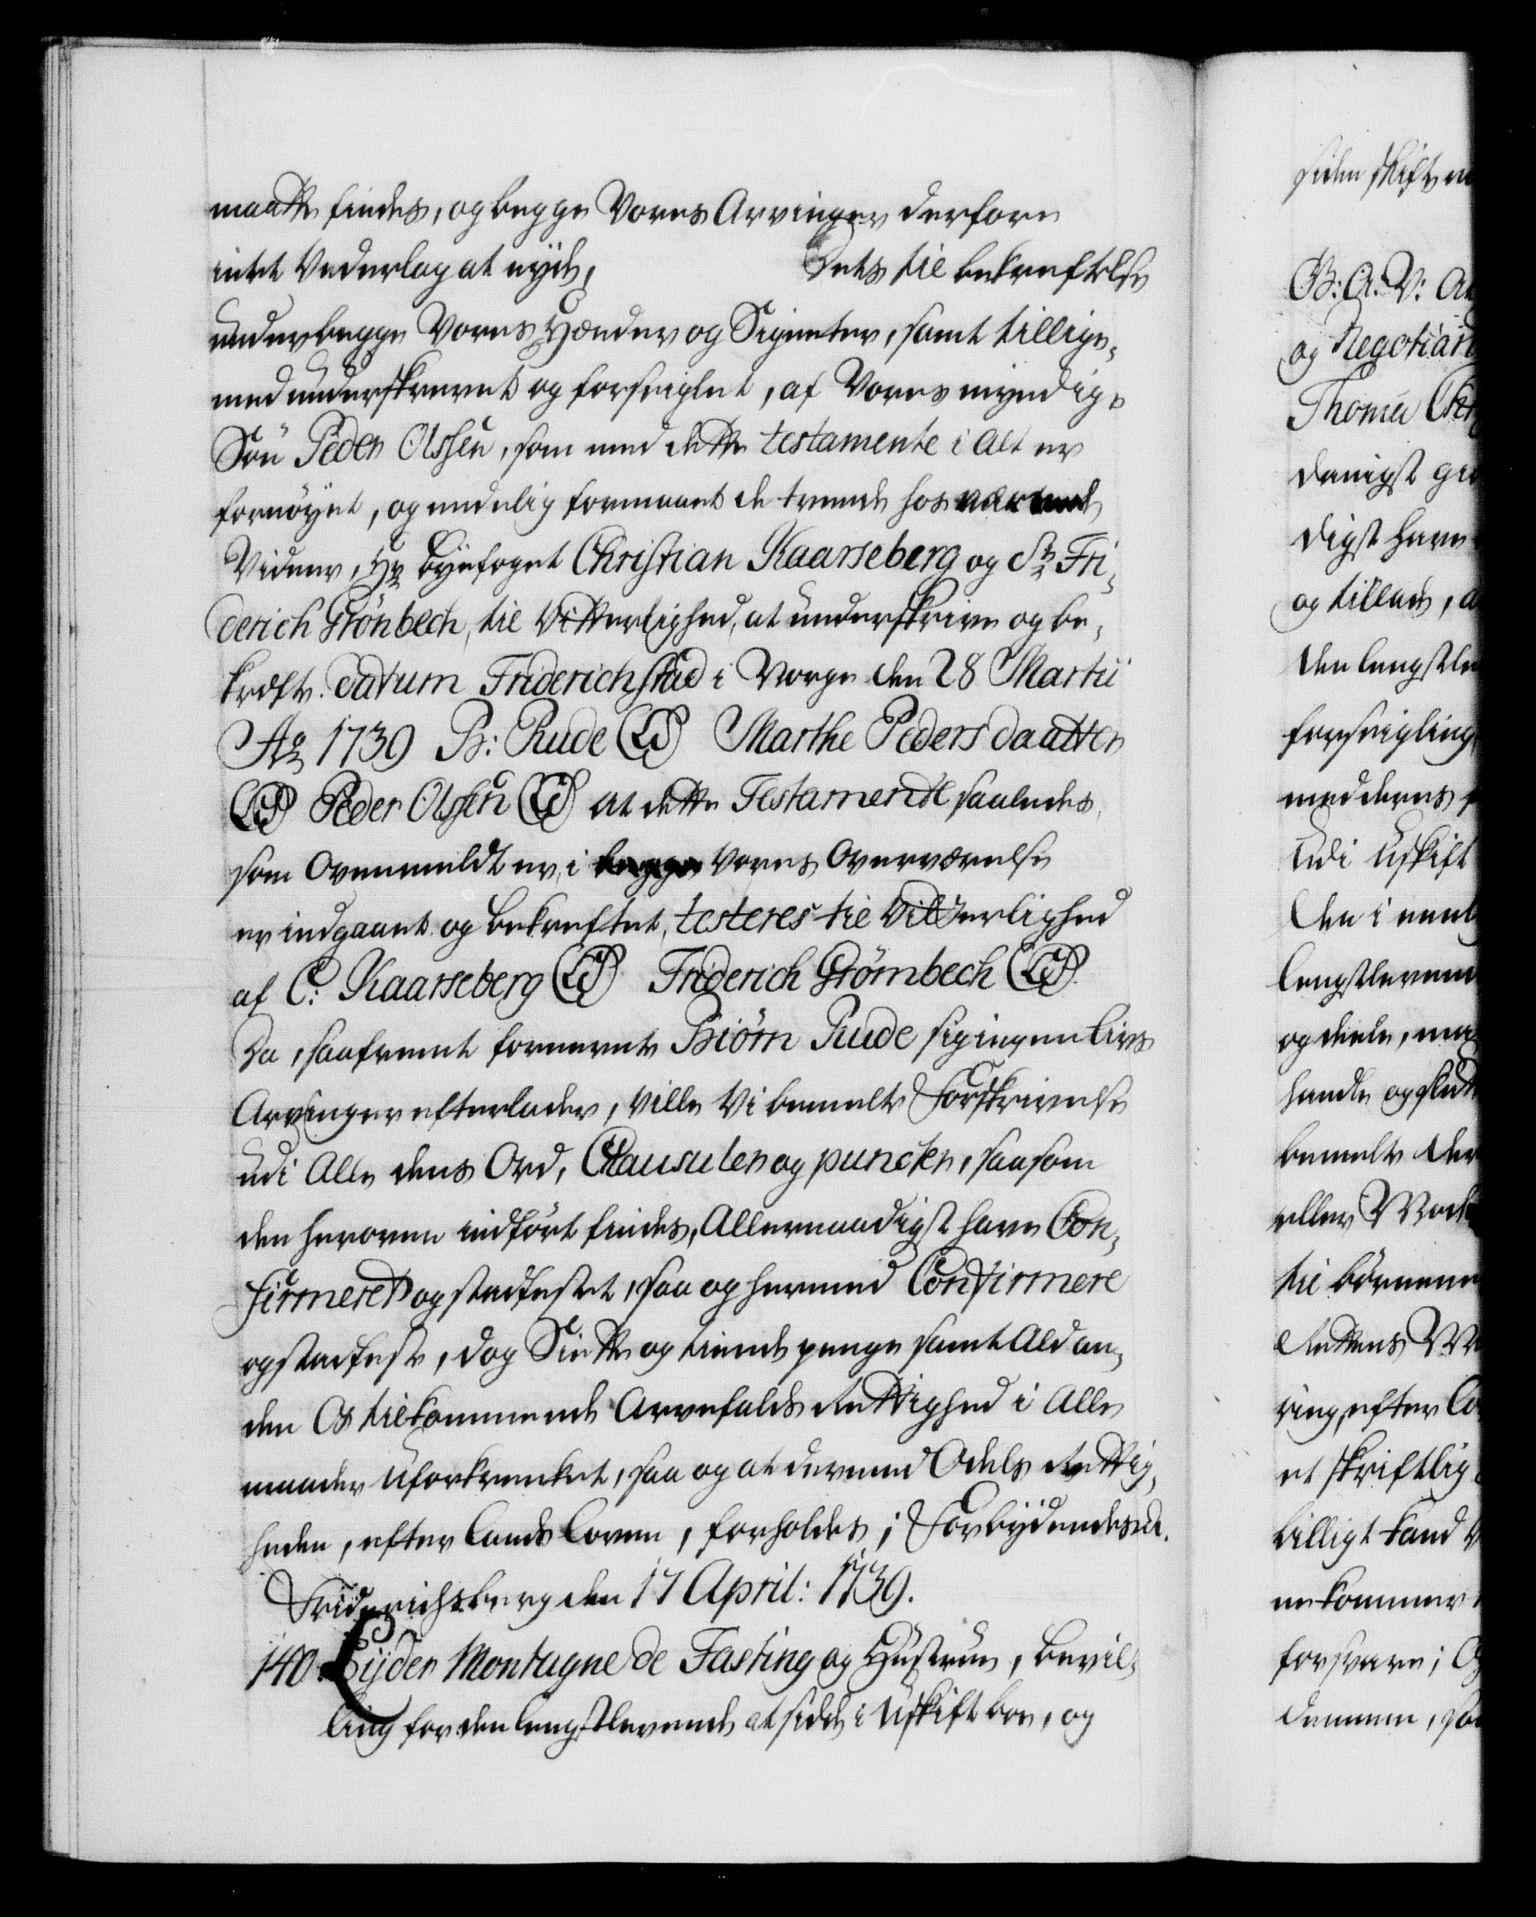 maatte findes, og begge Vores Arvinger derfore
intet Vederlag at nyde, Dets til bekreftelse
under begge Vores Hænder og Signeter, samt tillige-
med underskrevet og forseiglet, af Vores myndige
Søn Peder Olssen, som med dette testamente i Alt er
fornøyet, og endelig formaaet de tvende hos værende
Vidner, Hr Byefoget Christian Kaarseberg og Sr Fri-
derich Grönbech, til Vitterlighed, at underskrive og be-
kræfte. datum Friderichstad i Norge den 28 Martii
Ao 1739 B: Rude (LS) Marthe Peders daatter
(LS) Peder Olssen (LS) at dette Testamente saaledes,
som Ovenmeldt er, i begge Vores Overværelse
er indgaaet og bekreftet, testeres til Vitterlighed
af C: Kaarseberg (LS) Friderich Grömbech (LS).
Da, saafremt fornevnte Biörn Rude sig ingen Livs
Arvinger efterlader, Ville Vi bemelte Forskrivelse
udi Alle dens Ord, Clausuler og puncter, saasom
den heroven indført findes, Allernaadigst have Con-
firmeret og stadfestet, saa og hermed Confirmere
og stadfeste, dog Siette og tiende penge samt Ald an-
den Os tilkommende Arvefalds Rettighed i Alle
maader Uforkrenket, saa og at dermed Odels Rettig-
heden, efter Lands Loven, forholdes; Forbydendes etc.
Friderichsberg den 17 April: 1739.
140. Lyder Montagne de Fasting og Hustrue, bevil-
ling for den lengstlevende at sidde i Uskift boe, og
siden skifte
B: A: V: At
og Negotian
Thomæ
danigst
digst have
og tillade, a
den lengstle
forseigling
med deres
Udi Uskift
den i
lengstleven
og deele,
handle og slutte
bemelte
eller
til børnene
Rettens
ring, efter Lo
et skriftlig
billigt kand
ne kommer
forsvare; Og
dennem, saa